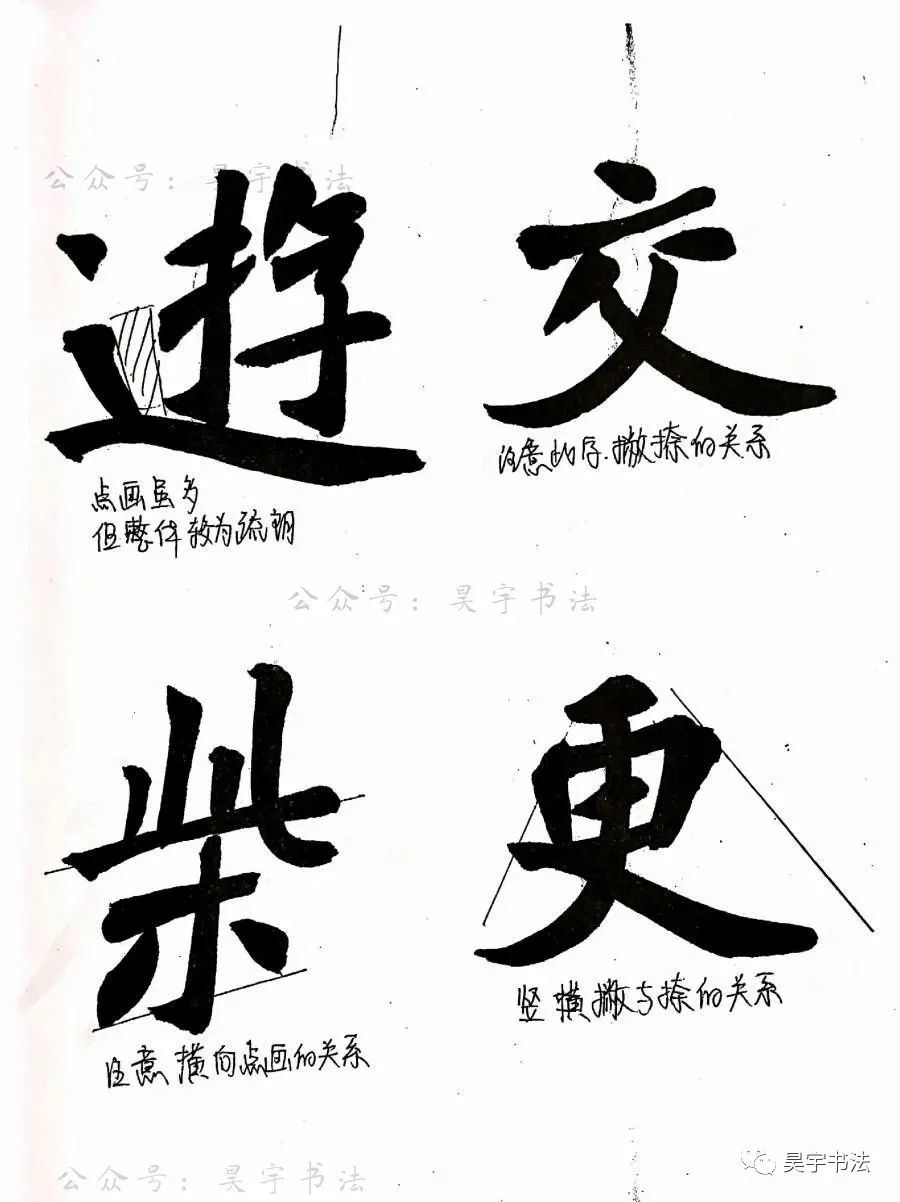 公众号：昊宇书法
遊
交
点画虽多
但整体较为疏朗
注意此字.撇捺的关系
公众号：昊宇书法
柴
更
注意横向点画的关系
竖横撇与捺的关系
公众号：昊宇书法
昊宇书法